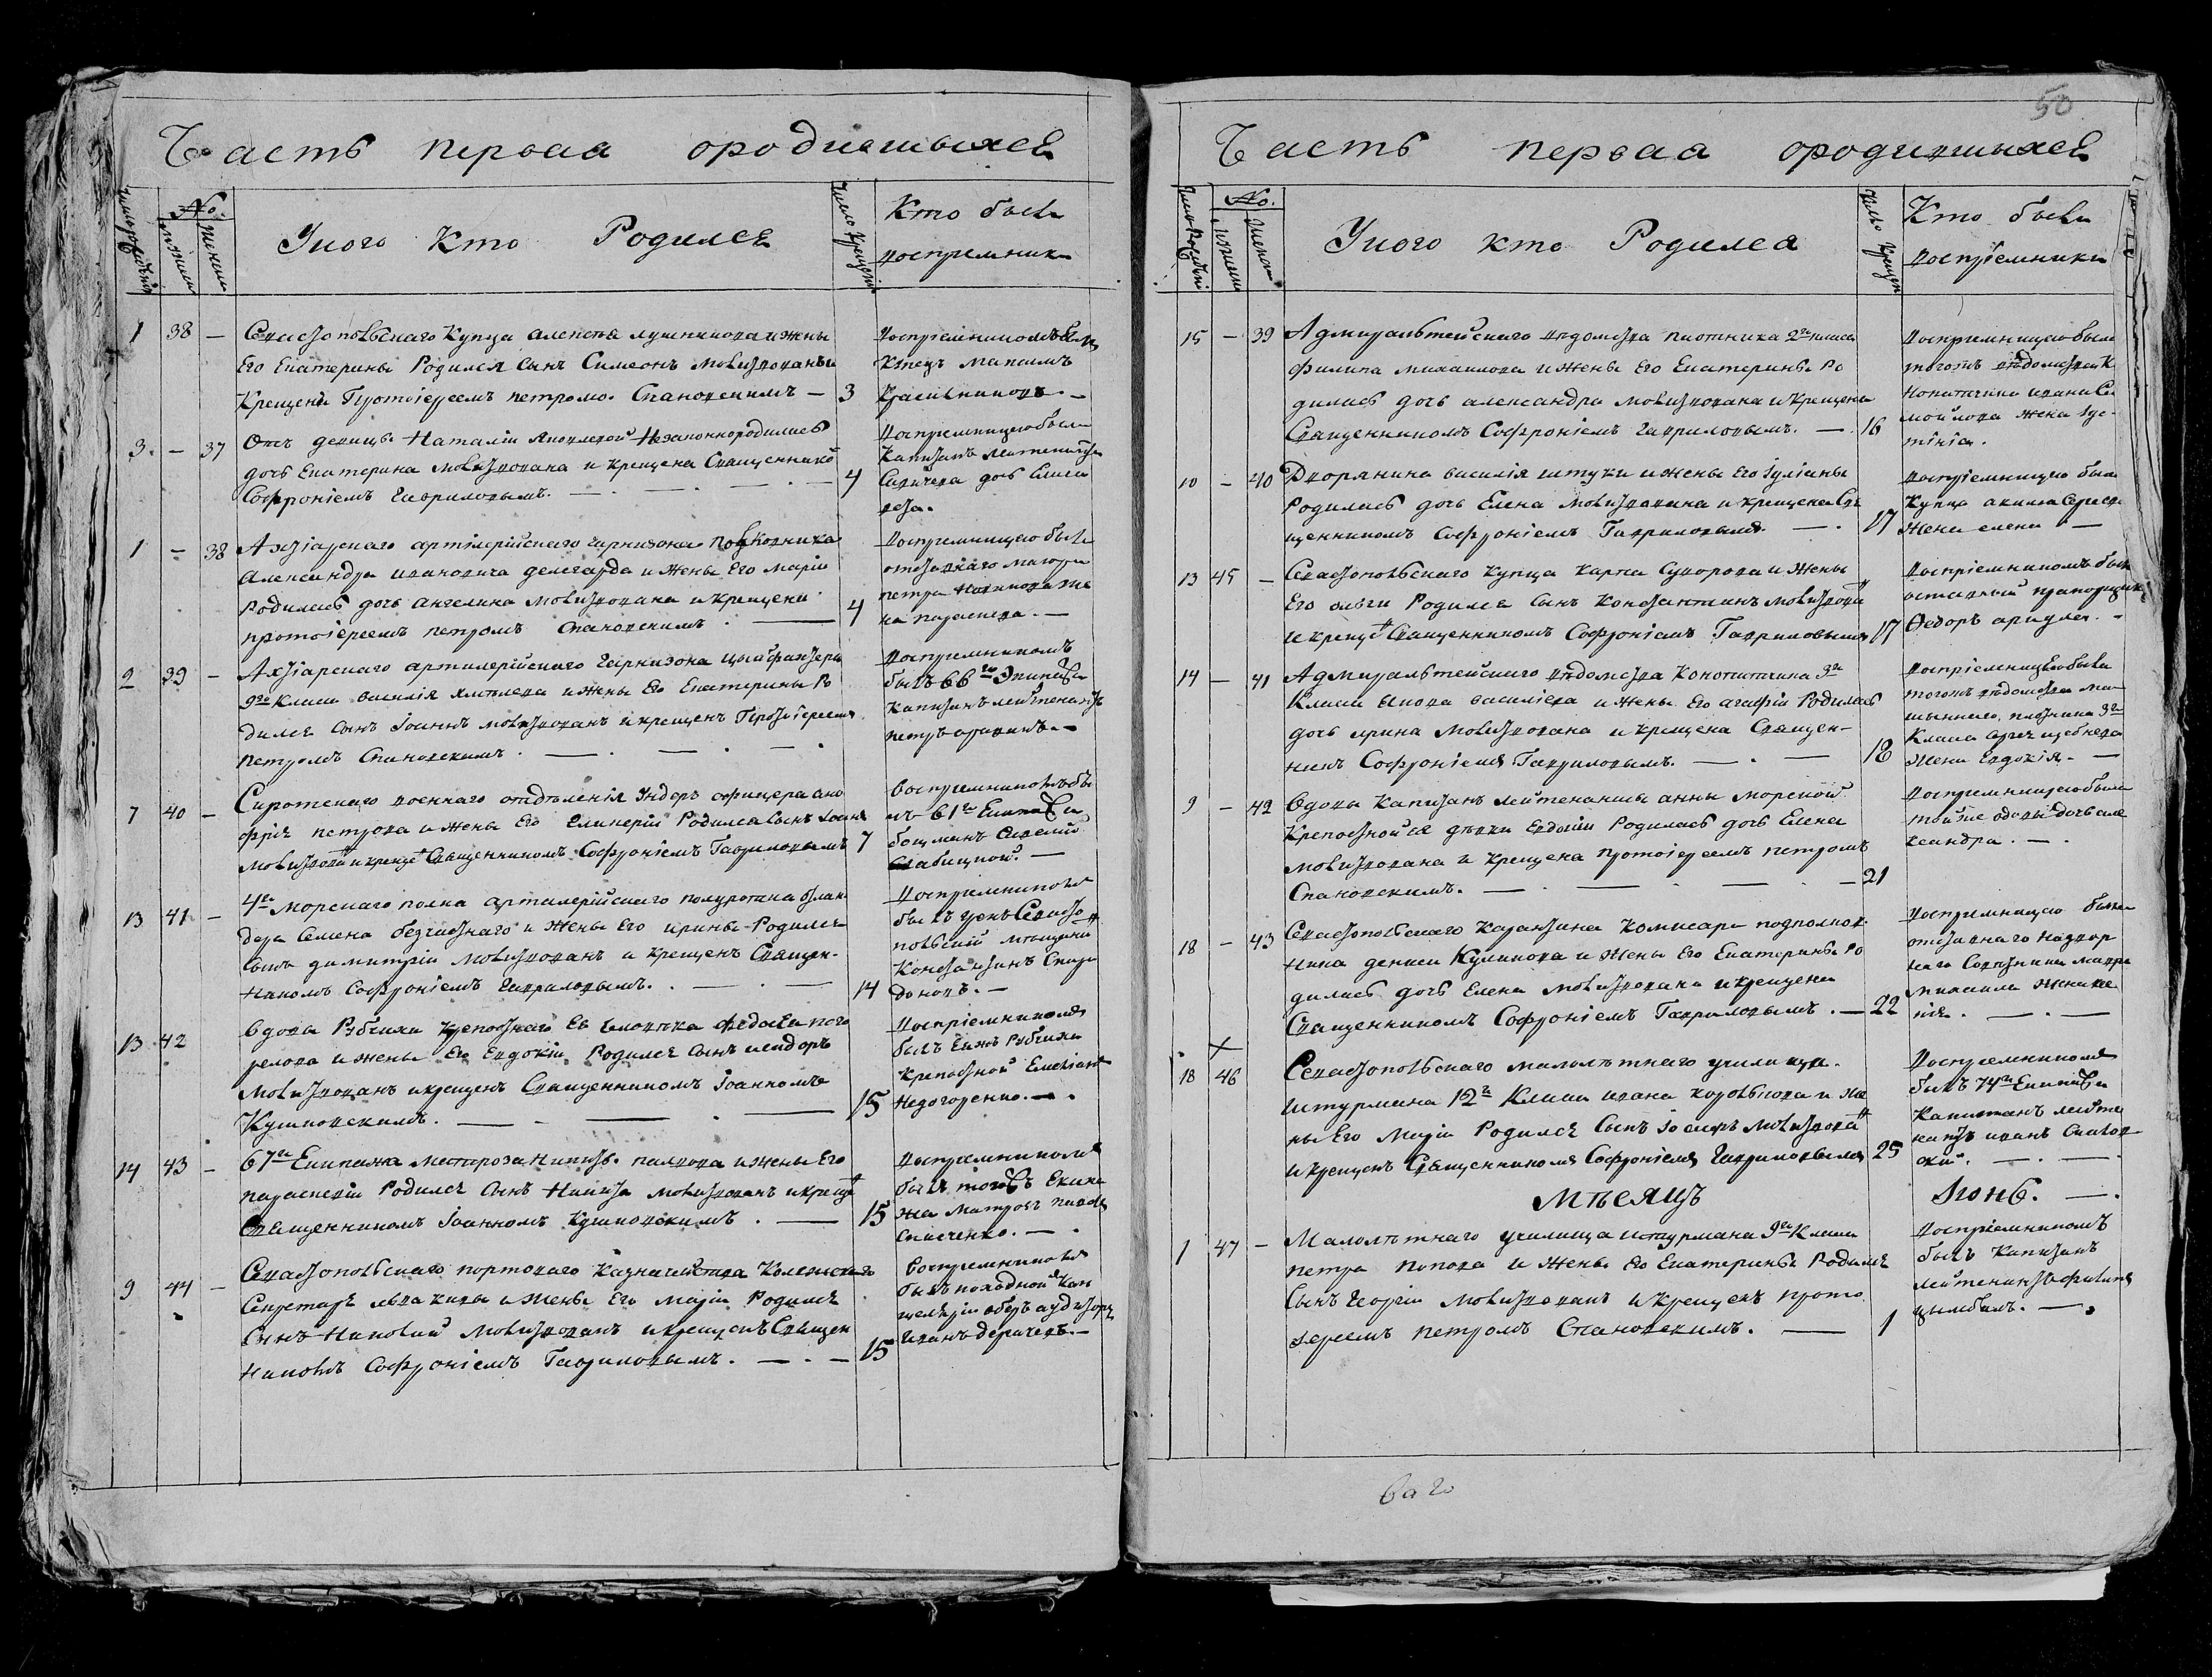 Часть первая ородившыхся
Число рождения
No.
Мужеска
Женска
У кого кто Родился
Число Крещения
Кто были
воспріемники
1 38 – Севастопольскаго Купца алексея лушникова и жены
Его Екатерины Родился Сынъ Симеонъ молитвованъ и
Крещенъ Протоіереемъ петромъ Спановскимъ — 3
Воспріемникомъ былъ
Купецъ Максимъ
Красильниковъ. –
3. – 37 Отъ девицы Наталіи Яковлевой Незаконнородилась
дочь Екатерина молитвована и крещена Священнико
Софроніемъ Гавриловымъ. — . — . — . — 4
Воспріемницею была
Капитанъ Лейтенанта
дочь Елиса
вета.
1 – 38 Ахтіарскаго артилерійскаго гарнизона Полковника
Александра ивановича делегарда и Жены Его Маріи
Родилась дочь ангелина молитвована и крещена
протоіереемъ петромъ Спановскимъ . — 4
Воспріемницею была
отставнаго маіора
петра Новикова же
на параскева. —
2 39 – Ахтіарскаго артилерійскаго гарнизона цыйфахтера
9го Класа василія хмелева и жены Его Екатерины Ро
дился Сынъ Іоаннъ молитвованъ и крещенъ Протоіереемъ
Петромъ Спановскимъ. — . — . — .
Воспріемникомъ
былъ 66го Экипажа
Капитанъ лейтенантъ
петръ
7 40 – Сиротскаго военнаго отделенія Ундеръ офицера ано
фрія петрова и жены Его Гликеріи Родился Сынъ Іоаннъ
молитвованъ и креще Священникомъ Софроніемъ Гавриловымъ 7
Воспріемникомъ бы
лъ 61го Екипажа
боцманъ
13 41 – 4го Морскаго полка артилерійскаго полуротна
Семена безчаснаго и Жены Его ирины Родился
Сынъ димитрій молитвованъ и крещенъ Священ-
никомъ Софроніемъ Гавриловымъ. . — . — 14
Воспріемникомъ
былъ Грекъ Севасто
польскій мещанинъ
Константинъ Спири
доновъ. –
13 42 Вдовы Рябчихи крепостнаго Ея человека Федота пого
релова и жены Его Евдокіи Родился Сынъ исидоръ
Молитвованъ и крещенъ Священникомъ Іоанномъ
Кушковскимъ. — . — . — 15
Воспріемникомъ
былъ Ея жъ Рябчихи
крепостной Емельянъ
Недогоренко. – .
14 43 – 67го Екипажа Матроза Никиты павлова и жены Его
параскевіи Родился Сынъ Никита молитвованъ и креще
Священникомъ Іоанномъ Кушковскимъ . — 15
Воспріемникомъ
былъ тогожъ Екипа
жа Матросъ
9 44 – Севастопольскаго портоваго Казначейства Колежскаго
Секретаря льва киры и жены Его Маріи Родился
Сынъ Николай молитвованъ и крещенъ Священ
никомъ Софроніемъ Гавриловымъ. — . — 15
Воспріемникомъ
былъ походной кан
целяріи оберъ аудиторъ
Иванъ –
50
Часть первая ородившыхся
No.
У кого кто Родился
Число Крещен
Кто были
Воспріемники
15 – 39 Адмиралтейскаго ведомства плотника 2го класа
Филипа михаилова и жены Его Екатерины Ро
дилась дочь александра молитвована и крещена
Священникомъ Софроніемъ Гавриловымъ. — . 16
Воспріемницею была
тогожъ ведомства К
Конопатчика ивана Са
мойлова жена Іус-
тинія.
10 – 40 Дворянина василія штуки и жены Его Іуліаны
Родилась дочь Елена молитвована и крещена Свя
щенникомъ Софроніемъ Гавриловымъ. — . 17
Воспріемницею была
Купца
Жена елена —
13 45 – Севастопольскаго купца карпа Суворова и жены
Его ольги Родился Сынъ Константинъ молитвова
и креще Священникомъ Софроніемъ Гавриловымъ 17
Воспріемникомъ былъ
оставный прапорщикъ
Федоръ –
14 – 41 Адмиралтейскаго ведомства Конопатчика 3го
Класа Якова василіева и жены Его агафіи Родилась
дочь ирина молитвована и крещена Священ-
никъ Софроніемъ Гавриловымъ. — . — 18
Воспріемницею была
тогожъ ведомства
плотника 3го
Класа
Жена Евдокія. —
9 – 42 Вдовы Капитанъ лейтенанши анны морской
Крепостной ея девки Евдокіи Родилась дочь Елена
молитвована и крещена протоіереемъ петромъ
Спановскимъ. — . — . — . — 21
Воспріемницею была
тойже вдовы дочь але
ксандра. — .
18 – 43 Севастопольскаго Карантина Комисара подполков
ника дениса Куликова и Жены Его Екатерины Ро
дилась дочь Елена молитвована и крещена
Священникомъ Софроніемъ Гавриловымъ . — 22
Воспріемницею была
отставнаго Надвор
наго Советника
18 46 Севастопольскаго малолетнаго училища
Штурмана 12го Класа ивана королькова и же
ны Его Маріи Родился Сынъ Іосифъ Молитвова
и крещенъ Священникомъ Софроніемъ Гавриловымъ 25
Воспріемникомъ
былъ 74го Екипажа
Капитанъ лейте
нантъ иванъ
Месяцъ Іюнь. — .
1 47 – Малолетнаго училища штурмана 9го Класа
петра попова и Жены Его Екатерины Родился
Сынъ Георгій Молитвованъ и крещенъ прото
іереемъ петромъ Спановскимъ. — 1
Воспріемникомъ
былъ Капитанъ
лейтенантъ филипъ
цымбалъ. — .